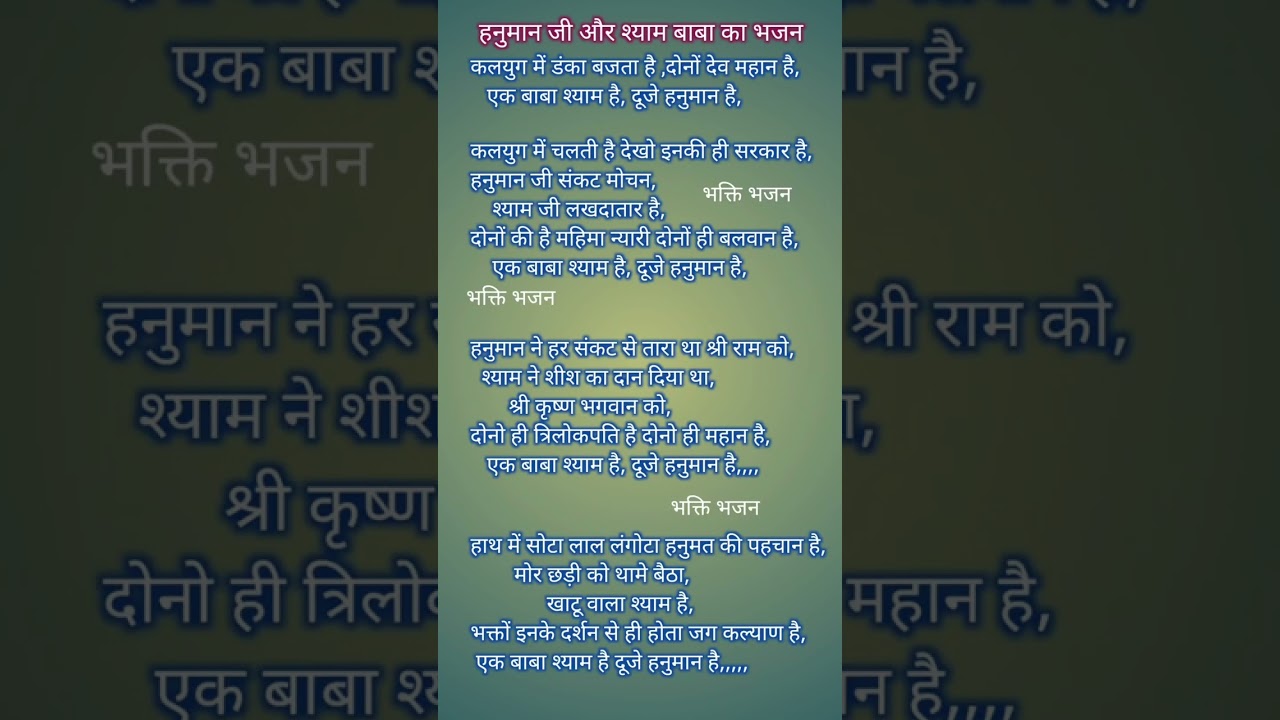 हनुमान जी और श्याम बाबा का भजन
कलयुग में डंका बजता है ,दोनों देव महान है,
एक बाबा श्याम है, दूजे हनुमान है,
कलयुग में चलती है देखो इनकी ही सरकार है,
हनुमान जी संकट मोचन,
भक्ति भजन
श्याम जी लखदातार है,
दोनों की है महिमा न्यारी दोनों ही बलवान है,
एक बाबा श्याम है, दूजे हनुमान है,
भक्ति भजन
हनुमान ने हर संकट से तारा था श्री राम को,
श्याम ने शीश का दान दिया था,
श्री कृष्ण भगवान को,
दोनो ही त्रिलोकपति है दोनो ही महान है,
एक बाबा श्याम है, दूजे हनुमान है,,,,
भक्ति भजन
हाथ में सोटा लाल लंगोटा हनुमत की पहचान है,
मोर छड़ी को थामे बैठा,
खाटू वाला श्याम है,
भक्तों इनके दर्शन से ही होता जग कल्याण है,
एक बाबा श्याम है दूजे हनुमान है,,,,,
एक बाबा
भक्ति भजन
हनुमान ने हर
श्री राम को,
श्याम ने
श्री कृष्ण
दोनो ही
महान है,
एक बाबा